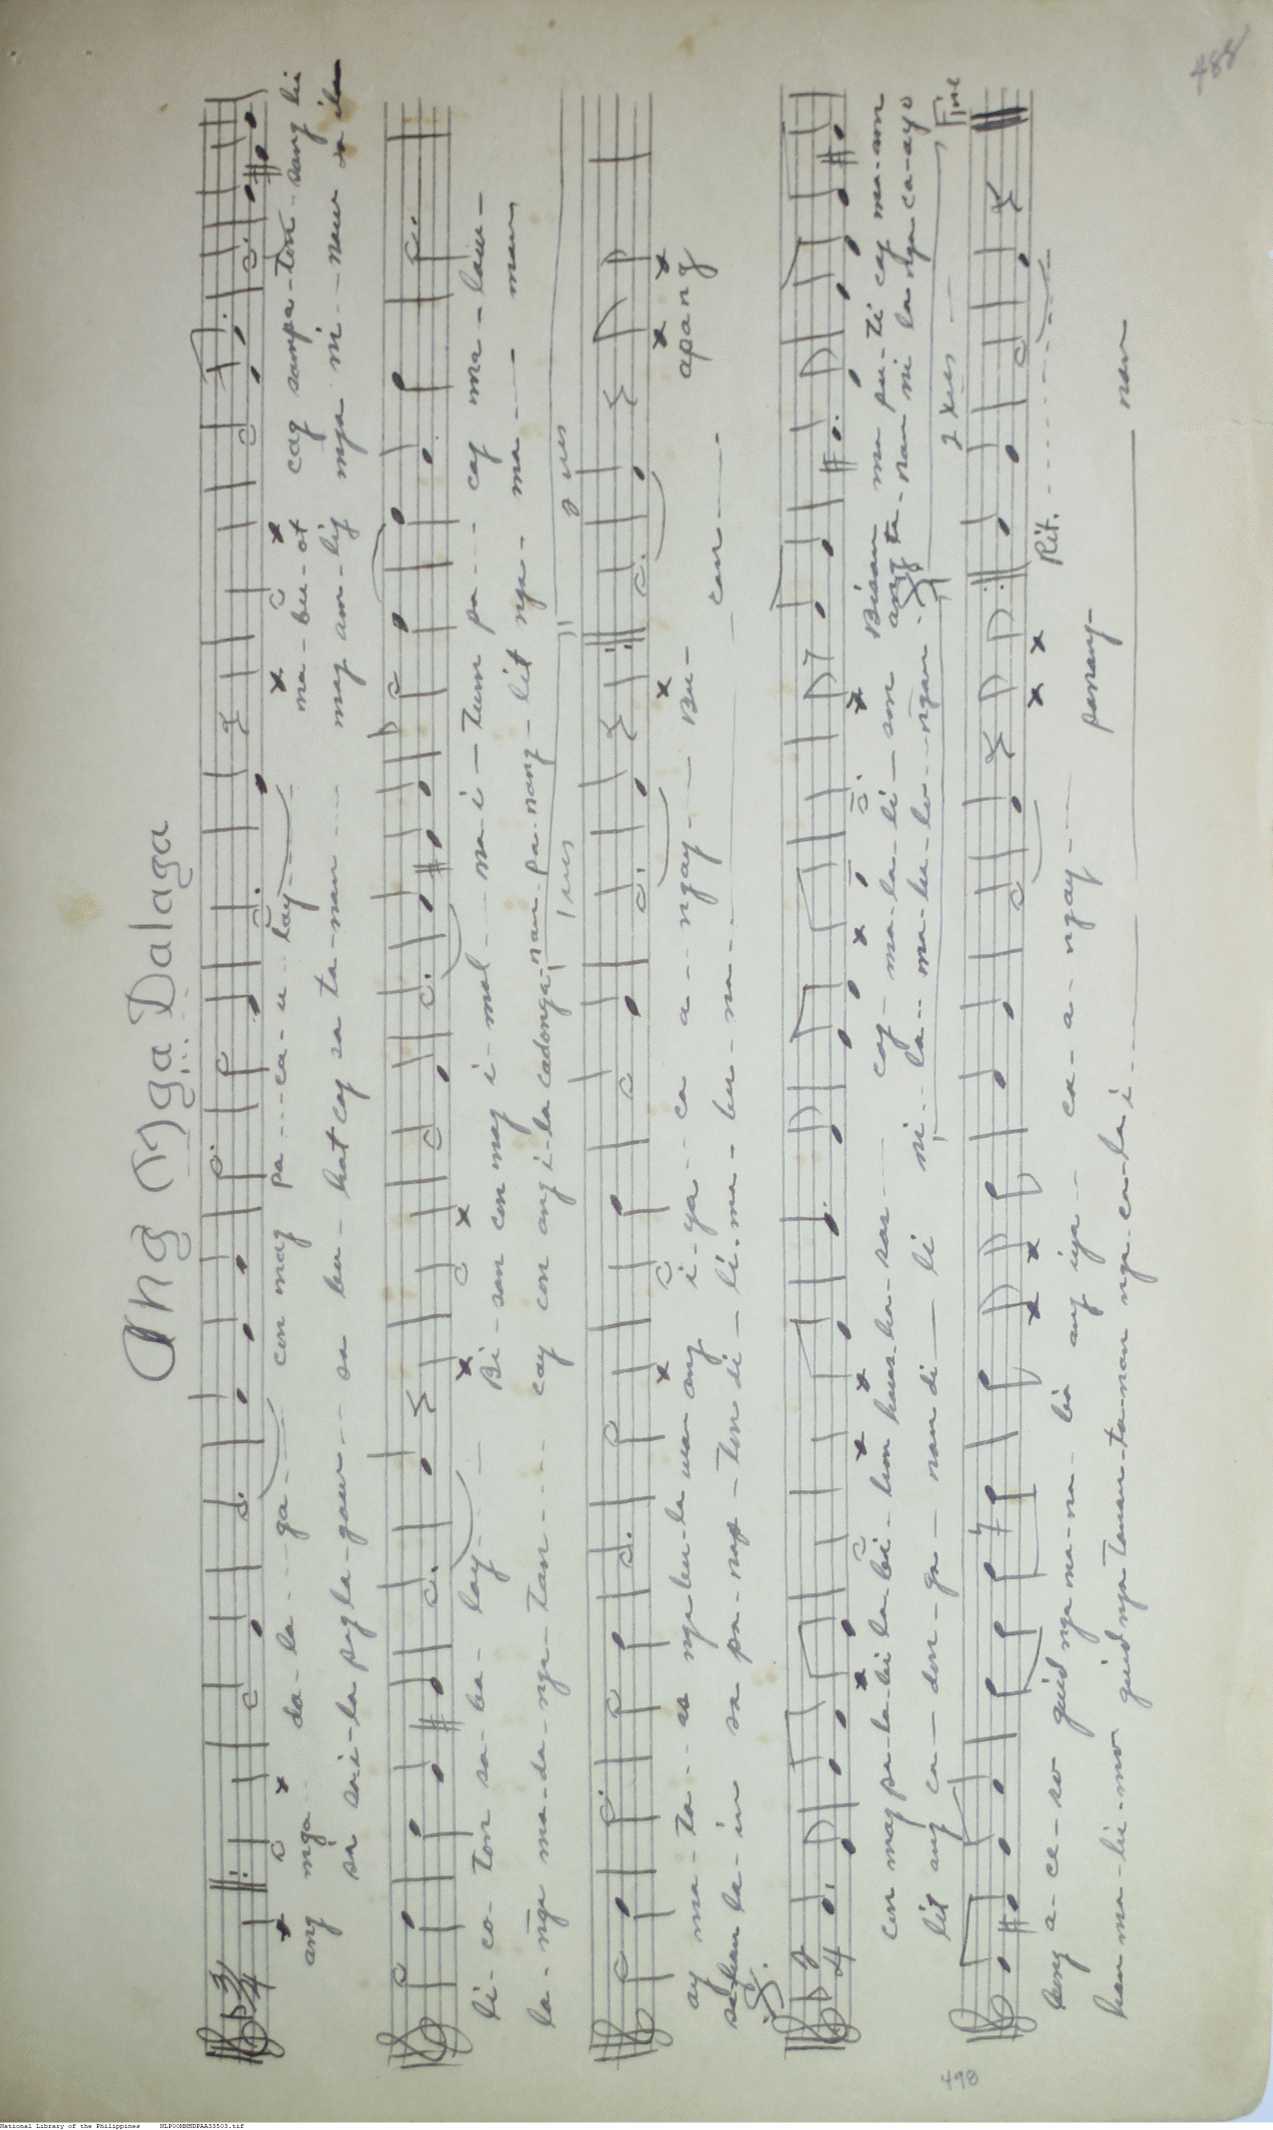 488
Ang Mga Dalaga
3
4
ang mga da-la---ga--- con mag pa---ca-u-lay--- ma-bu-ot cag sampa-ton-sang hi
sa sa i-la pag la-gaw-- sa bu-hat cag sa ta-nan --- may am-lig mga ni---naw sa ila
li-co-ton sa-ba-lay--- Bi-san con may i-mol--- na i-tum pa---- cay ma-law-
la-nga ma-da-nga-tan---- cay con ang i-la cadonga-nan-pa-nang-lit nga- ma---- man
1 ves
2 ves
ay ma-ta--as nga bu-la-wan ang i-ya--ca a---ngay--- Bu- apang
sa pa- -ton di-li-ma-bu-na-- can----
2
4
con mag pa-la-bi la-bi-hon hasa-ha-sas--- cay-ma-la-li-son Bisan ma pu-ti cag ma-am
lit ang ca-don-ga-nan di-li ni--la--ma-bu-lo--ngan ang ta-nan ni la nga ca-ayo
2 xes
Fine
bong a-ce-ro guid nga ma-na-bia ang iya-- ca-a-ngay--- panang-
Rit.
hau ma-li-mo guid nga Tanan-ta-nan nga ca-la i---- nan
498
National Library of the Philippines NLP00MNMDPAA33503.tif